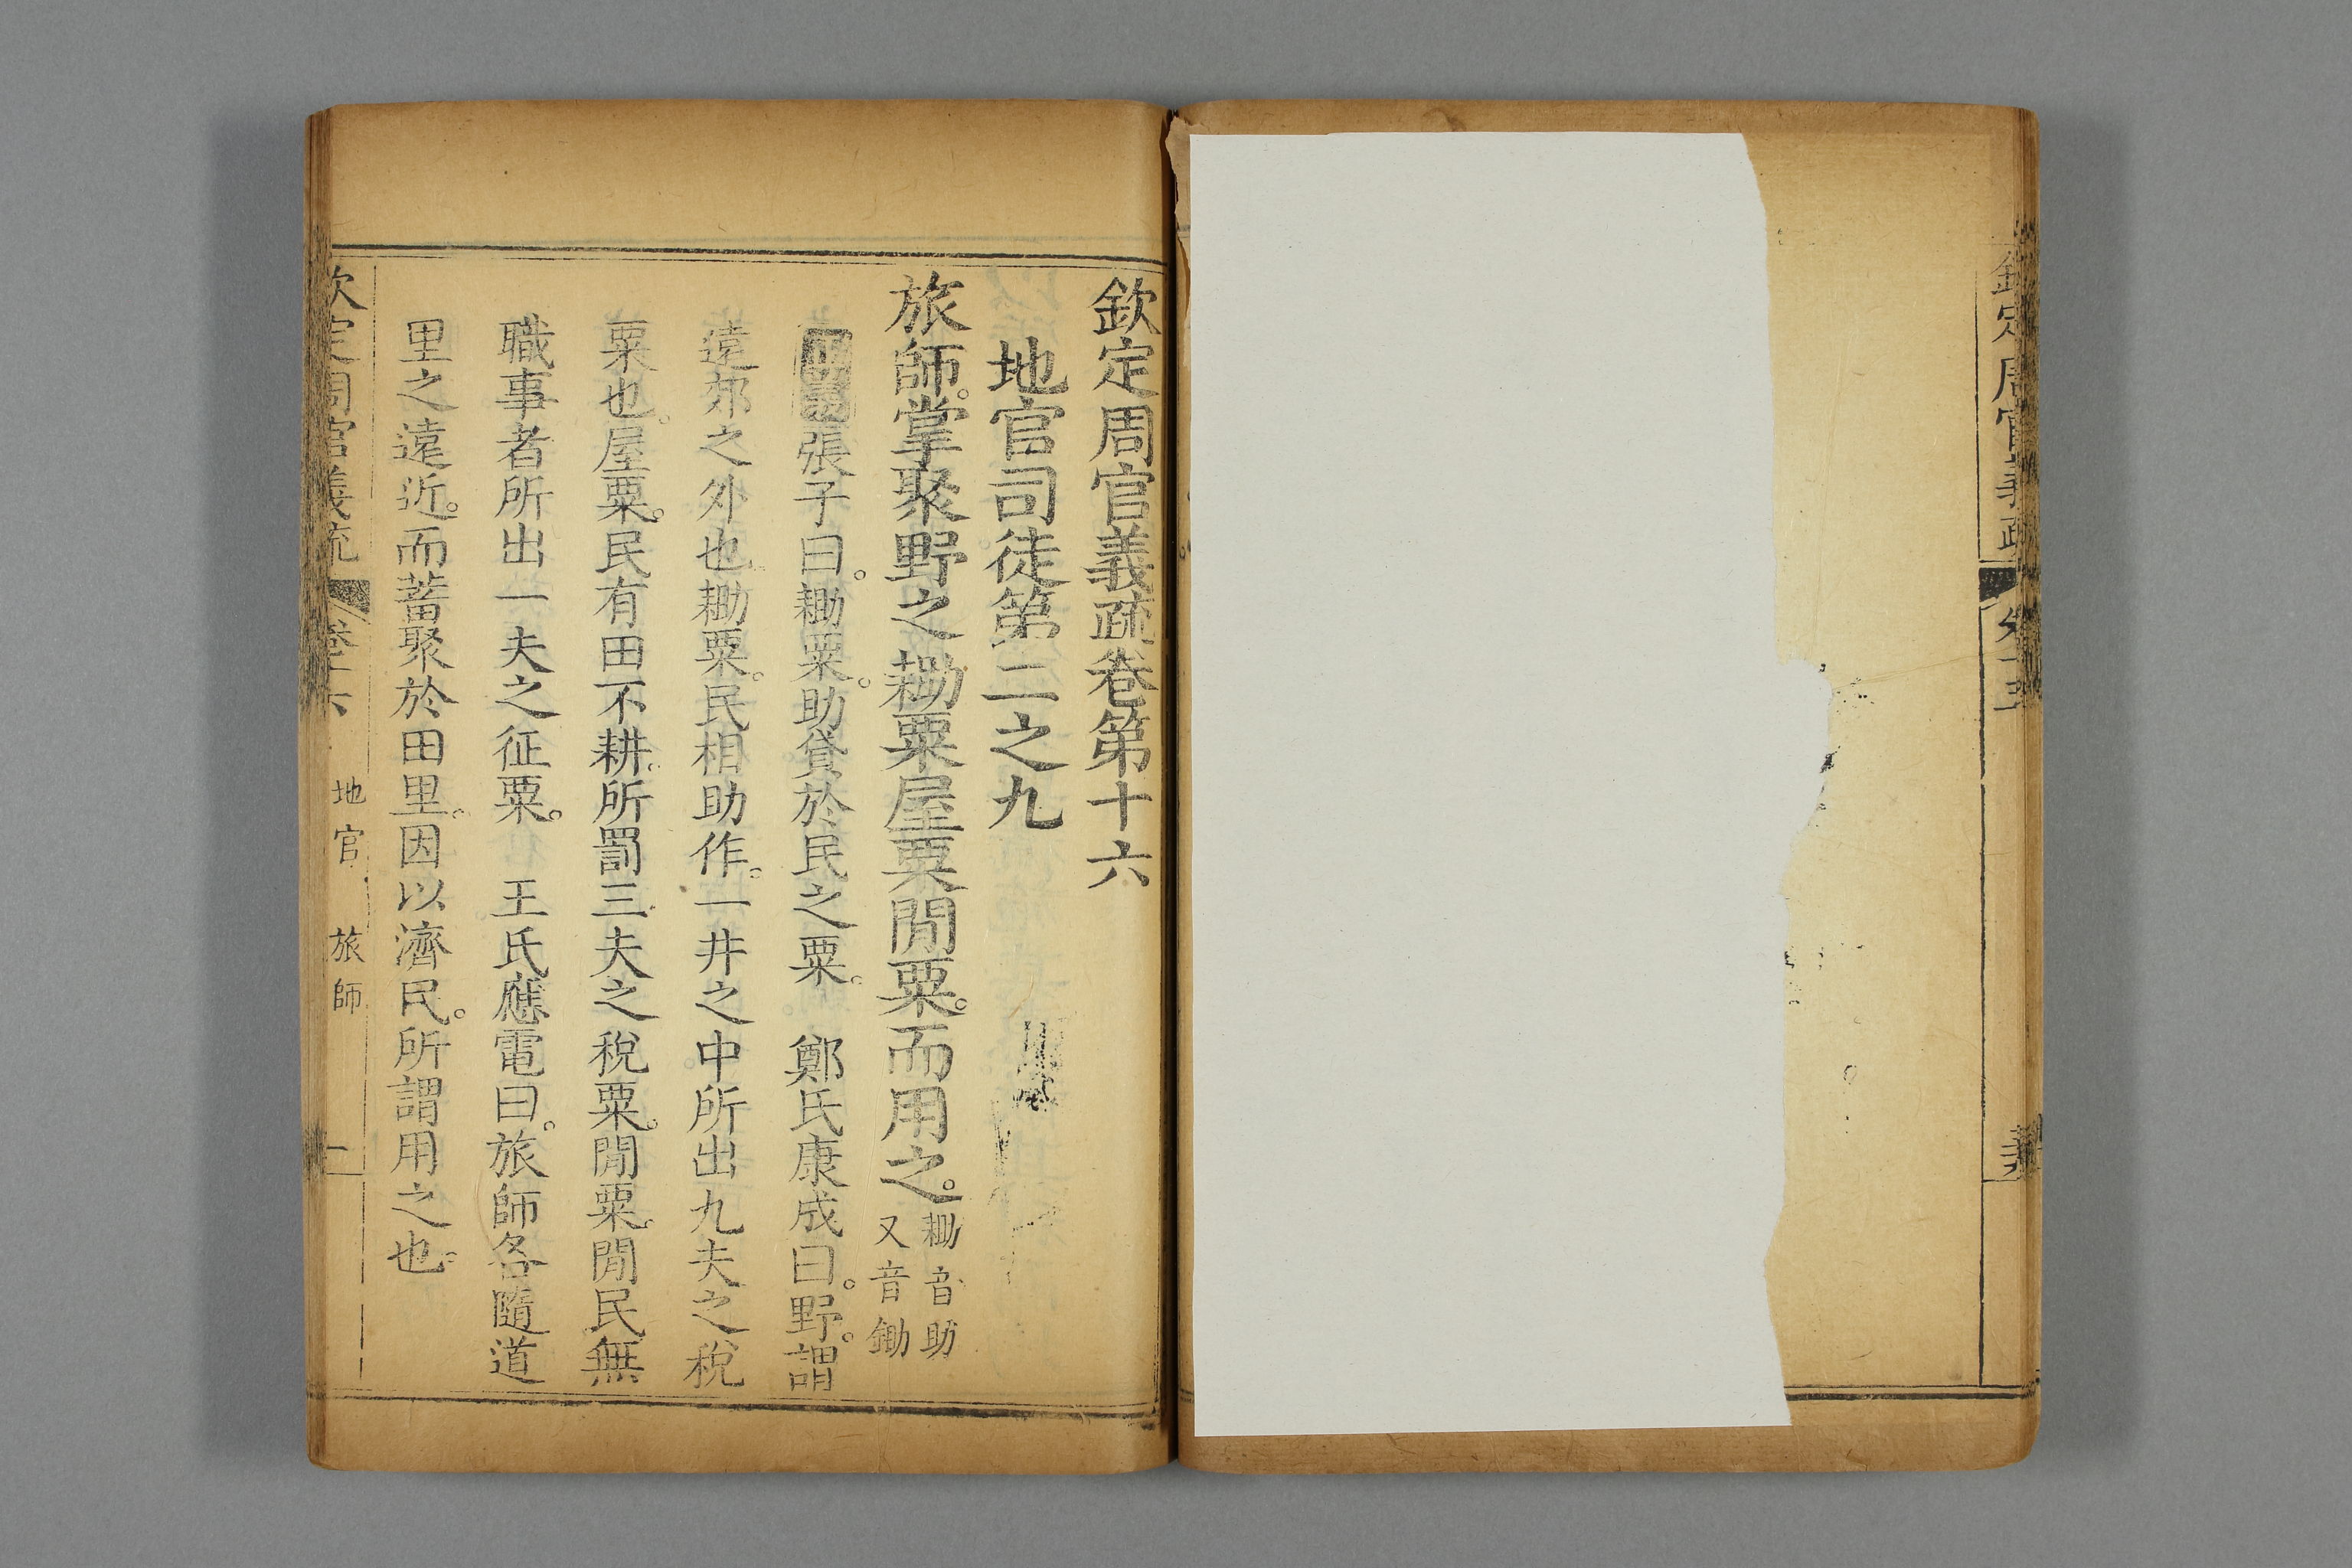 欽定周官義疏
欽定周官義疏卷第十六
地官司徒第二之九
旅師。掌聚野之耡粟屋粟閒粟。而用之。耡音助
又音鋤
正義張子曰。耡粟。助貸於民之粟。 鄭氏康成曰。野。謂
遠郊之外也。耡粟。民相助作。一井之中所出九夫之稅
粟也。屋粟。民有田不耕。所罰三夫之稅粟。閒粟。閒民無
職事者所出一夫之征粟。 王氏應電曰。旅師各隨道
里之遠近。而蓄聚於田里。因以濟民。所謂用之也。
欽定周官義疏 卷十六 地官 旅師 一